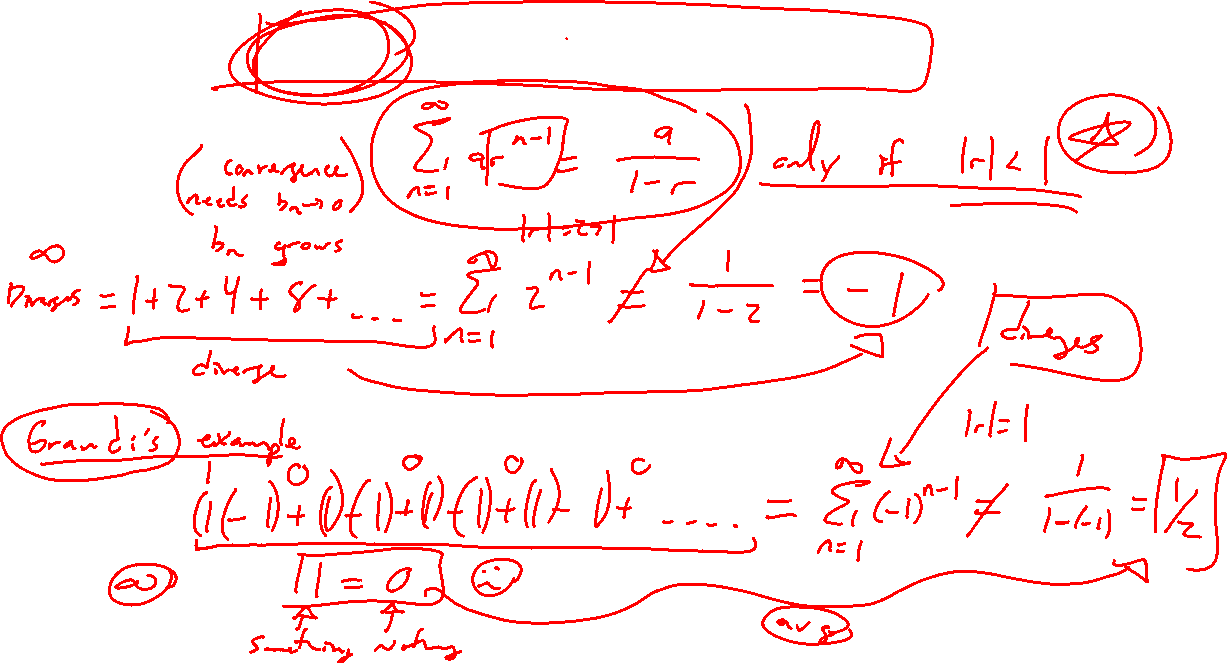 ∑_{n=1}^{∞} ar^{n-1} = a/(1-r) only if |r| < 1
(convergence
needs b_n→0)
b_n grows
|r|=2>1
∞
Diverges = 1+2+4+8+.... = ∑_{n=1}^{∞} 2^{n-1} ≠ 1/(1-2) = -1
diverge
diverges
|r|=1
Grandi's example
1 0 0 0 0
(1(-1)+(1)-(1)+(1)-(1)+(1)-1)+..... = ∑_{n=1}^{∞} (-1)^{n-1} ≠ 1/(1-(-1)) = 1/2
∞ 1=0
avg
Something Nothing